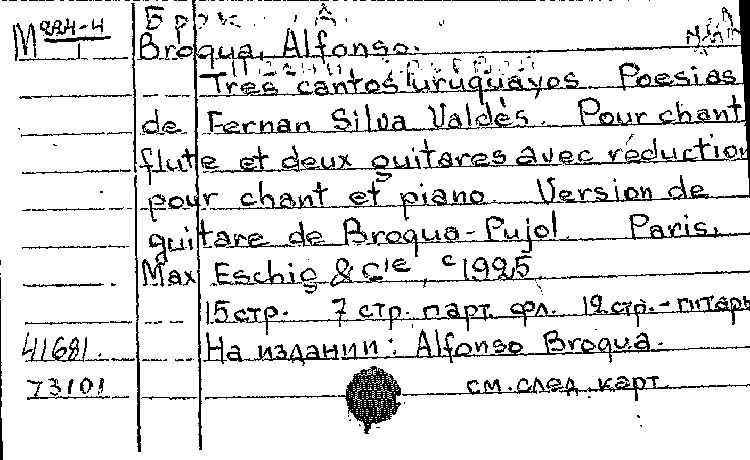 М 224-4
1
Брок А.
Broqua, Alfonso.
Tres cantos uruguayos. Poesias
de Fernan Silva Valdés. Pour chant
flute et deux guitares avec réduction
pour chant et piano. Version de
guitare de Broqua-Pujol. Paris,
Max Eschig & Cie, c1925.
15 стр. 7 стр. парт. фл. 12 стр.-гитары
На издании: Alfonso Broqua.
41681.
73101
см. след. карт.